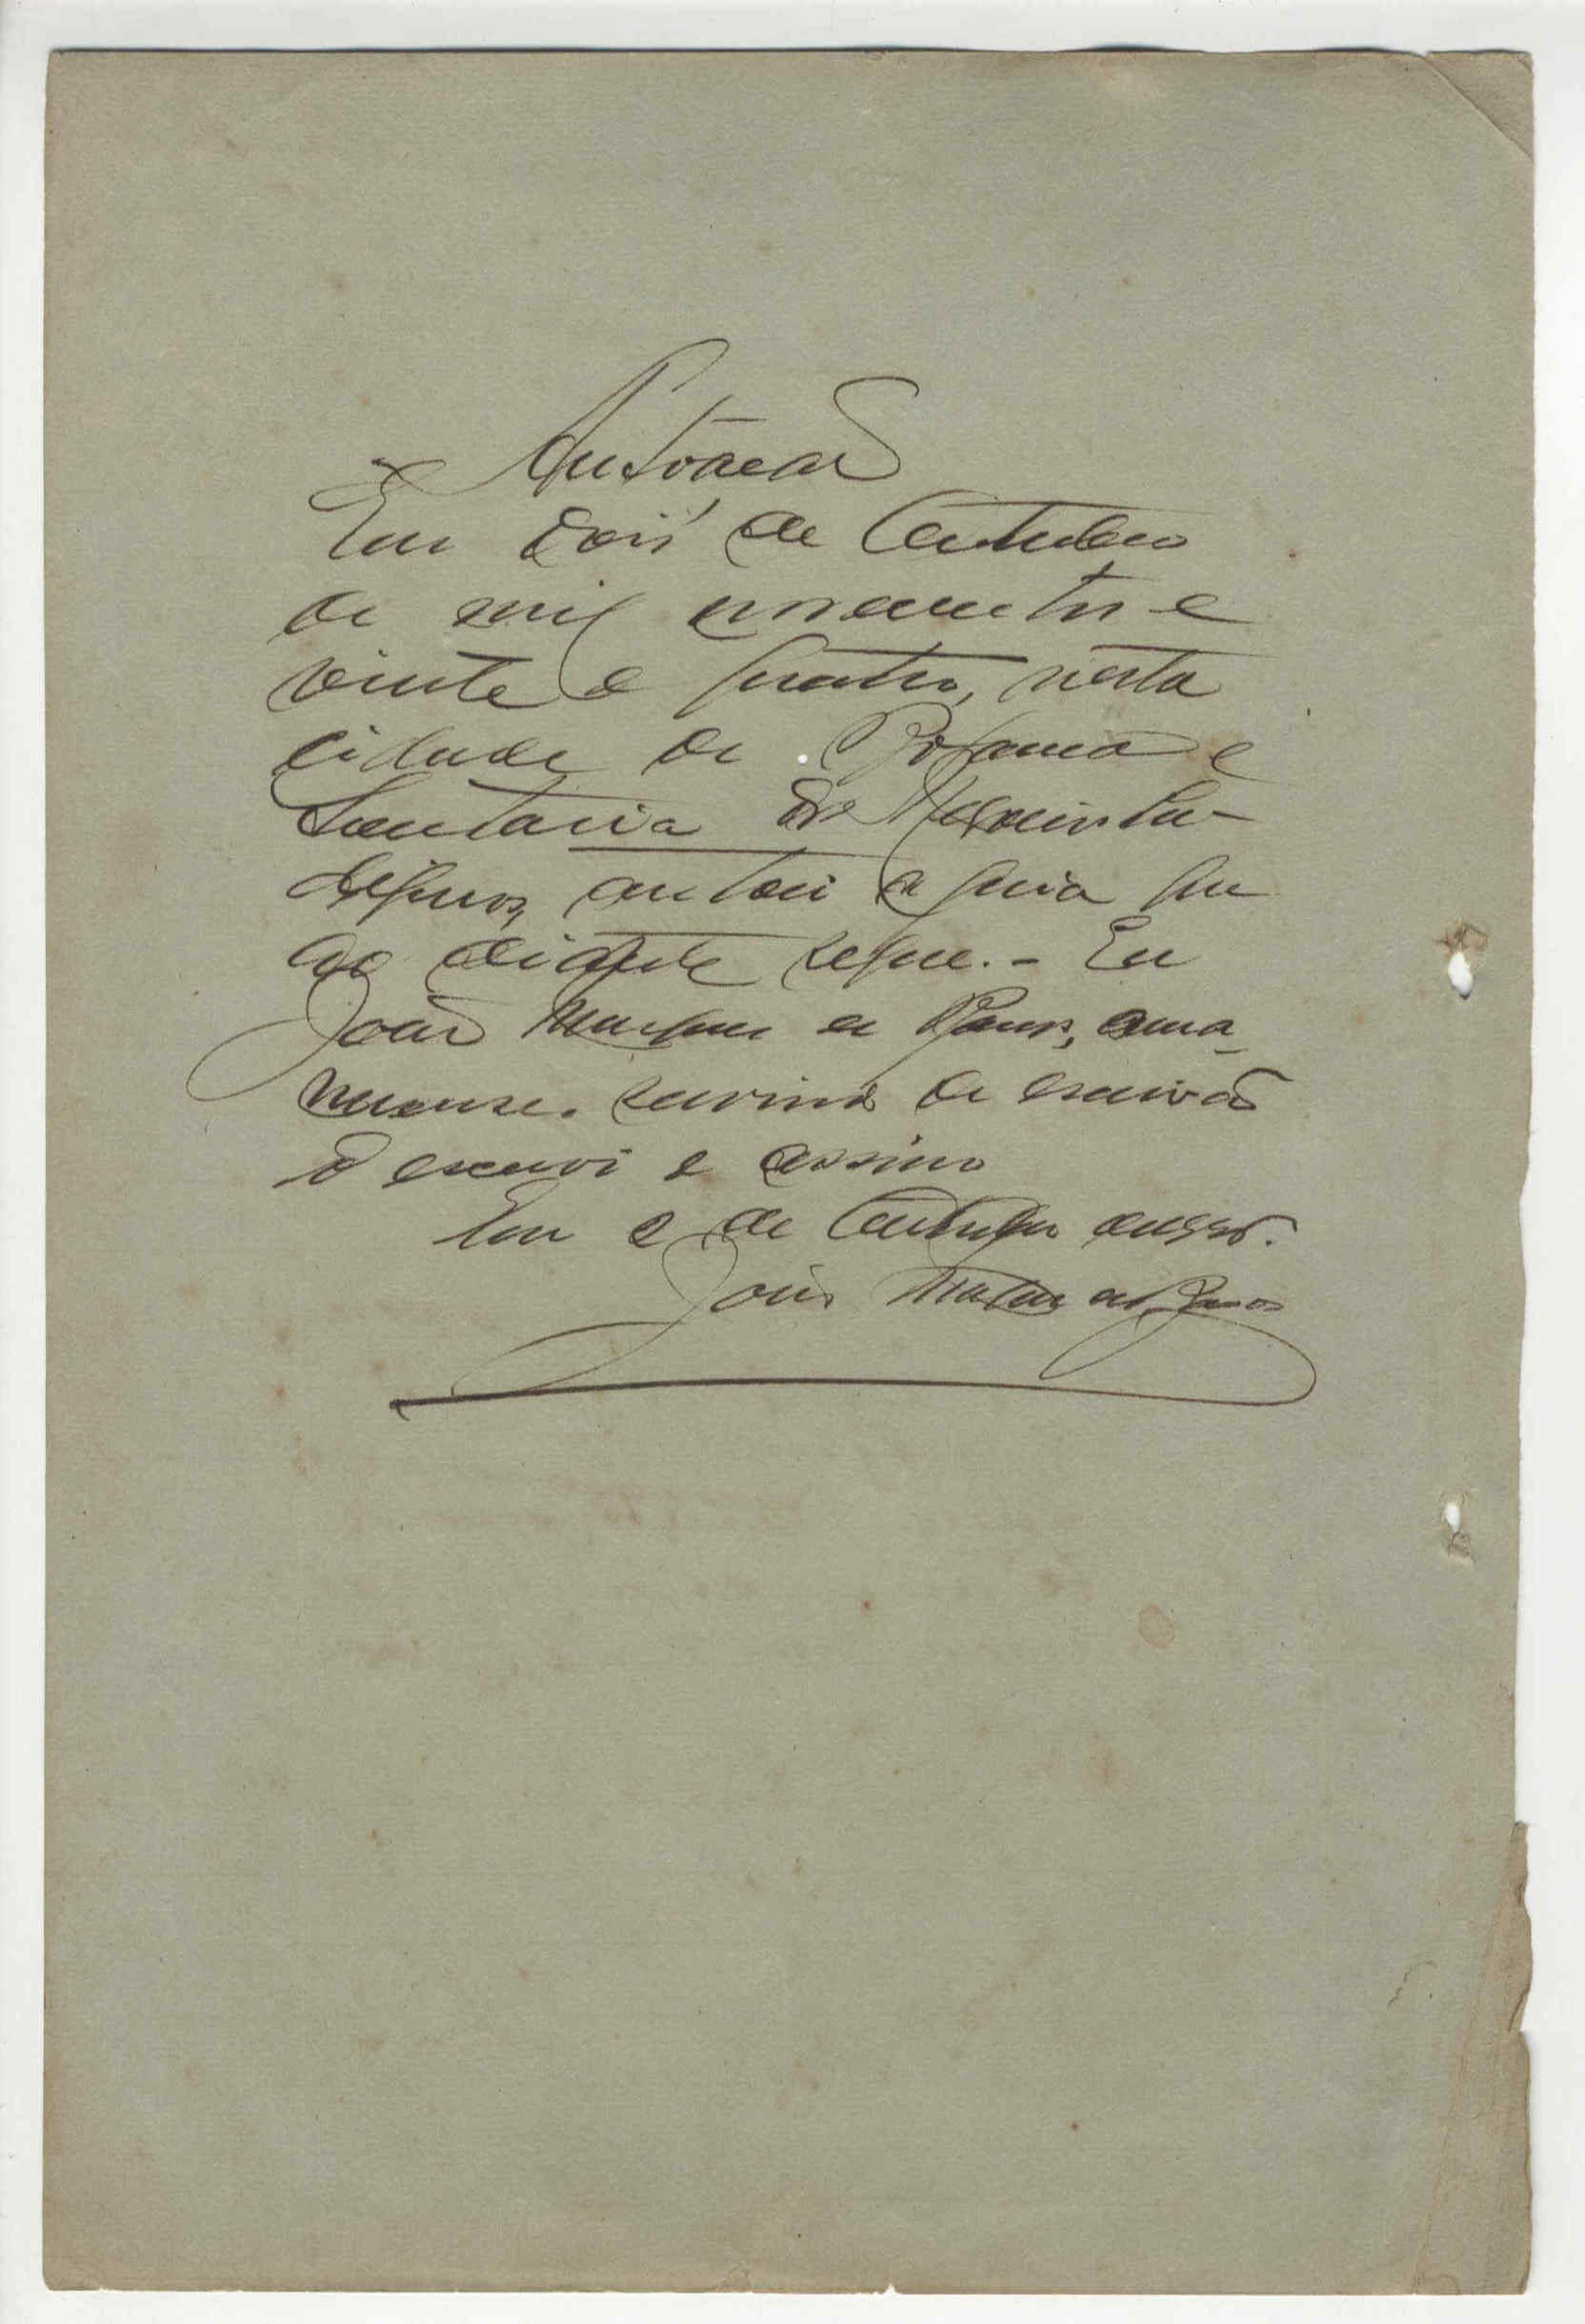 Autoacaõ
Em dois de Outubro
de mil novecentos e
vinte e quatro, nesta
cidade de
Secretaria da
autoei a guia que
ao diante segue. - Eu
João Marques de Passos, ama-
nuense, servindo de escrivaõ
o escrevi e assino
Em 2 de Outubro de 1924.
João Marques de Passos